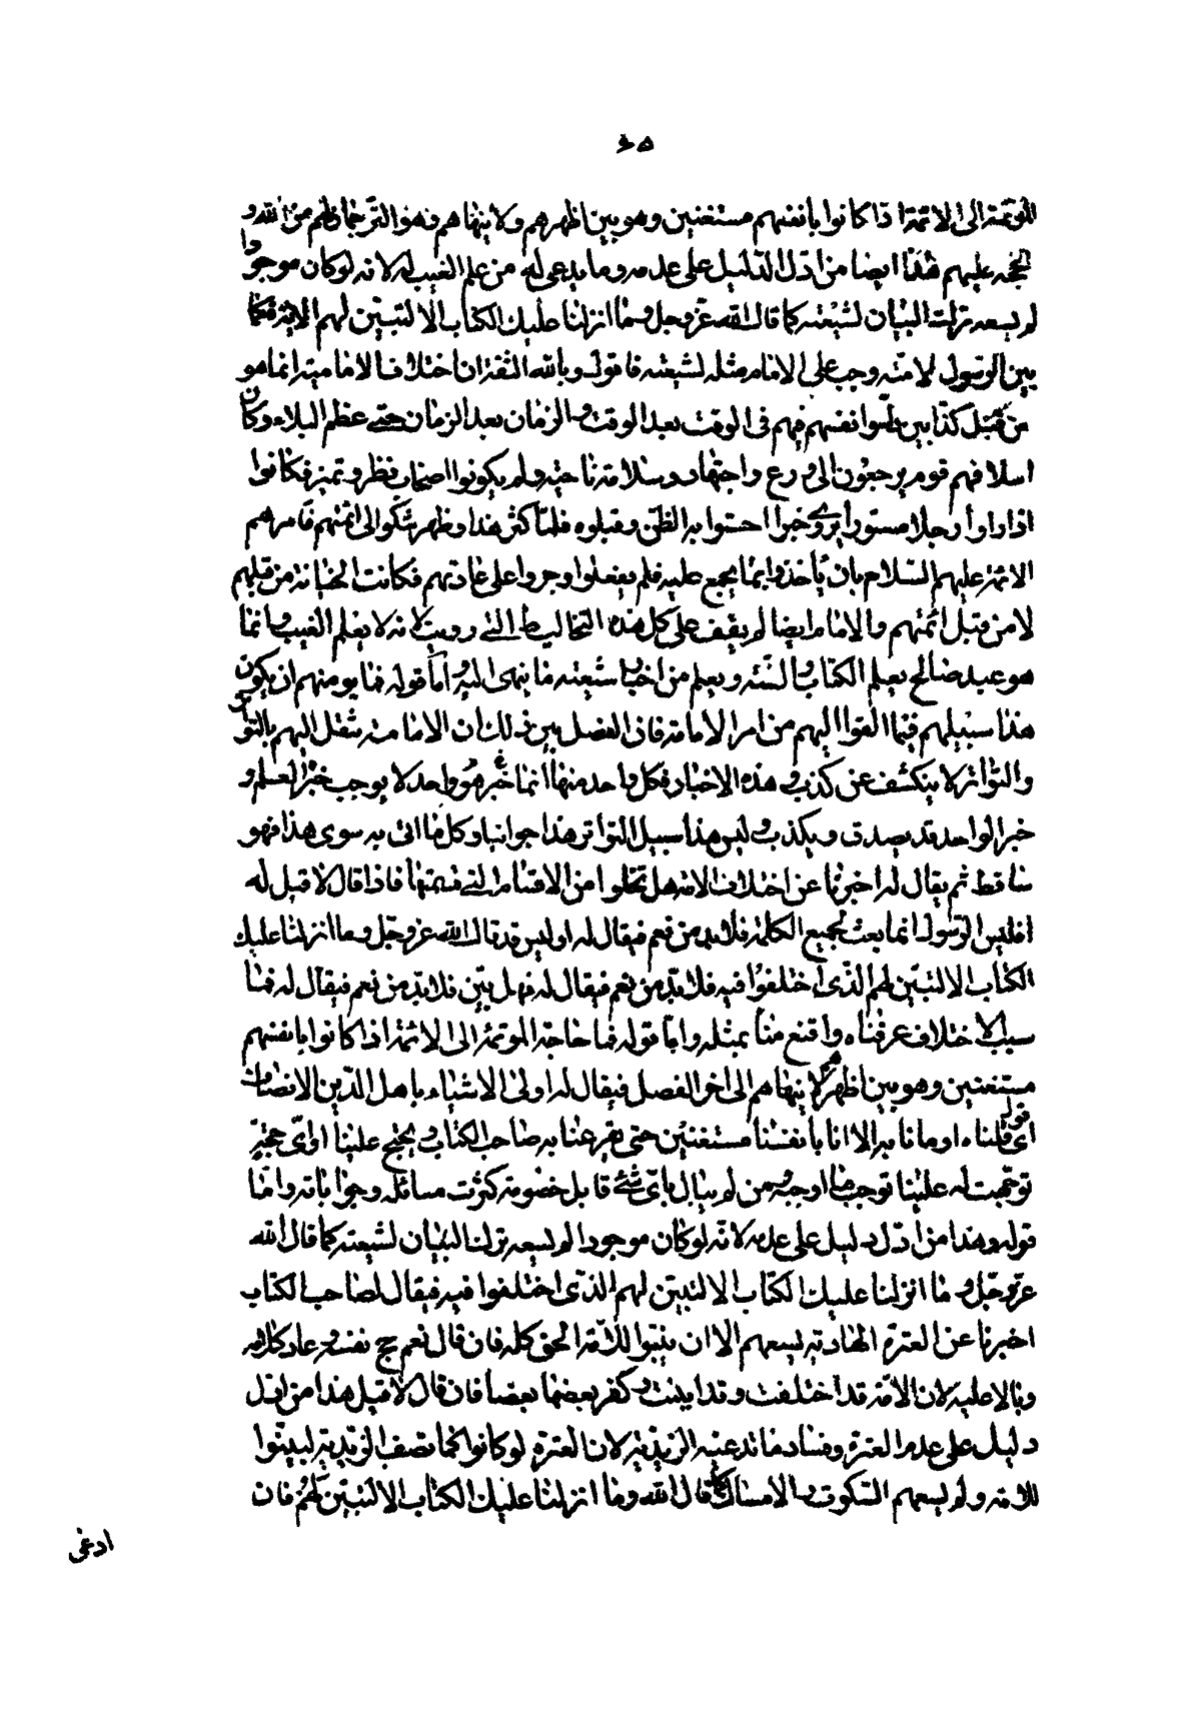 ٦٥
للمؤتمة الى الائمة اذا كانوا بانفسهم مستغنين وهو بين اظهرهم ولا ينهاهم فهو الترجمان لهم من الله و
الحجة عليهم هذا ايضا من ادل الدليل على عدمه وما يدعى له من علم الغيب له لانه لو كان موجودا
لم يسعه ترك البيان لشيعته كما قال الله عز وجل وما انزلنا عليك الكتاب الا لتبين لهم الاية فكما
بين الرسول لامته وجب على الامام مثله لشيعته فاقول وبالله الثقة ان اختلاف الامامية انما هو
من قبل كذابين دلسوا انفسهم فيهم فى الوقت بعد الوقت والزمان بعد الزمان حتى عظم البلاء وكان
اسلافهم قوم يرجعون الى ورع واجتهاد وسلامة ناحية ولم يكونوا اصحاب نظر وتميز فكانوا
اذا راوا رجلا مستورا يروى خبرا احسنوا به الظن وقبلوه فلما كثر هذا وظهر شكوا الى ائمتهم فامرهم
الائمة عليهم السلام بان يأخذوا بما يجمع عليه فلم يفعلوا وجروا على عادتهم فكانت الخيانة من قبلهم
لا من قبل ائمتهم والامام ايضا لم يقف على كل هذه التخاليط التى رويت لانه لا يعلم الغيب وانما
هو عبد صالح يعلم الكتاب والسنة ويعلم من اخبار شيعته ما ينهى اليه واما قوله فما يؤمنهم ان يكون
هذا سبيلهم فيما القوا اليهم من امر الامامة فان الفصل بين ذلك ان الامامة تنقل اليهم بالتواتر
والتواتر لا ينكشف عن كذب وهذه الاخبار فكل واحد منها انما خبر هو واحد لا يوجب خبره العلم و
خبر الواحد قد يصدق ويكذب وليس هذا سبيل التواتر هذا جوابنا وكل ما اتى به سوى هذا فهو
ساقط ثم يقال له اخبرنا عن اختلاف الامة هل تخلوا من الاقسام التى قسمتها فاذا قال لا قيل له
افليس الرسول انما بعث لجميع الكلمة فلابد من نعم فيقال له اوليس قد قال الله عز وجل وما انزلنا عليك
الكتاب الا لتبين لهم الذى اختلفوا فيه فلا بد من نعم فيقال له فهل بين فلا بد من نعم فيقال له فما
سبب الاختلاف عرفناه واقنع منا بمثله واما قوله فما حاجة المؤتمة الى الائمة اذا كانوا بانفسهم
مستغنين وهو بين اظهرهم لا ينهاهم الى اخر الفصل فيقال له اولى الاشياء باهل الدين الانصاف
اى قول قلناه او مانا به الا انا بأنفسنا مستغنين حتى يقرعنا به صاحب الكتاب ويحتج علينا او اى حجة
توجهت له علينا توجب ما اوجبه ومن لم يبال باى شئ قابل خصومه كثرت مسائله وجواباته واما
قوله وهذا من ادل دليل على عدمه لانه لو كان موجودا لم يسعه ترك البيان لشيعته كما قال الله
عز وجل وما انزلنا عليك الكتاب الا لتبين لهم الذى اختلفوا فيه فيقال لصاحب الكتاب
اخبرنا عن العترة الهادية يسعهم الا ان يبينوا للامة الحق كله فان قال نعم حج نفسه وعاد كلامه
وبالا عليه لان الامة قد اختلفت وقد باينت وكفر بعضها بعضا فان قال لا قيل هذا من ادل
دليل على عدم العترة وفساد ما تدعيه الزيدية لان العترة لو كانوا كما تصف الزيدية لبينوا
للامة ولم يسعهم السكوت والامساك كما قال الله وما انزلنا عليك الكتاب الا لتبين لهم فان
ادعى